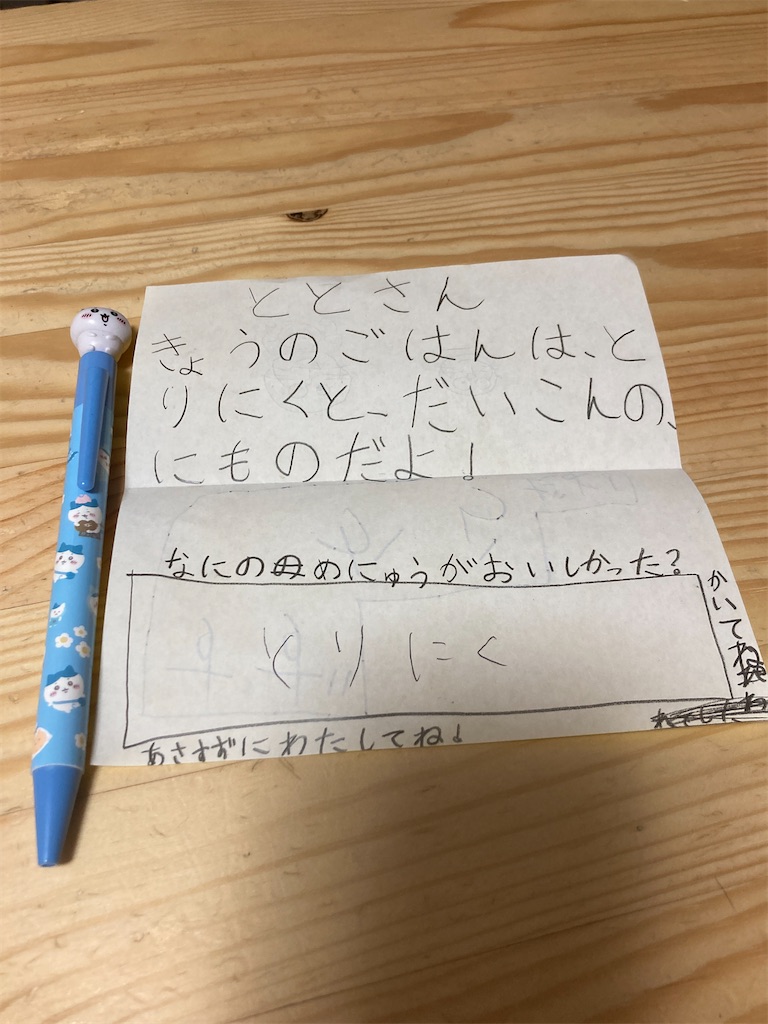 ととさん
きょうのごはんは、と
りにくと、だいこんの、
にものだよ!
なにのめにゅうがおいしかった?
かいてね
とりにく
あさすずにわたしてね!